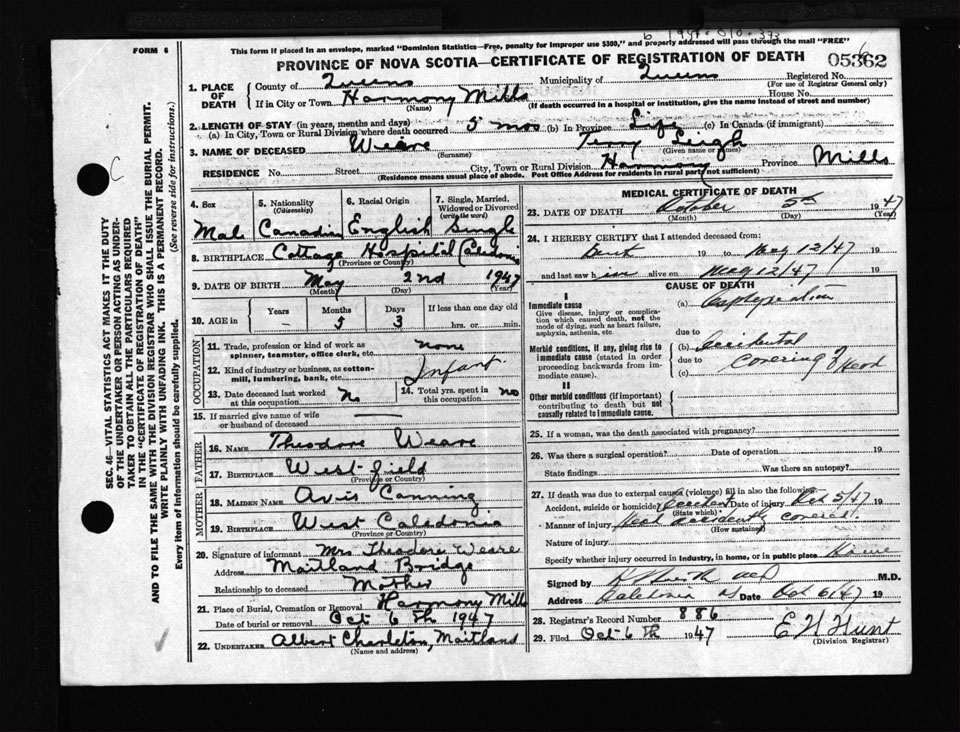 6 1947-010-393
FORM 6
This form if placed in an envelope, marked "Dominion Statistics—Free, penalty for improper use $300," and properly addressed will pass through the mail "FREE"
PROVINCE OF NOVA SCOTIA—CERTIFICATE OF REGISTRATION OF DEATH
05362
1. PLACE OF DEATH
County of Queens Municipality of Queens Registered No.
(For use of Registrar General only)
If in City or Town Harmony Mills House No.
(Name) (If death occurred in a hospital or institution, give the name instead of street and number)
2. LENGTH OF STAY (in years, months and days)
(a) In City, Town or Rural Division where death occurred 5 mos (b) In Province Life (c) In Canada (if immigrant)
3. NAME OF DECEASED Weare Terry Leigh
(Surname) (Given name or names)
RESIDENCE No. Street City, Town or Rural Division Harmony Mills Province
(Residence means usual place of abode. Post Office Address for residents in rural part not sufficient)
4. Sex 5. Nationality (Citizenship) 6. Racial Origin 7. Single, Married, Widowed or Divorced (write the word)
Mal Canadin English Single
8. BIRTHPLACE Cottage Hospital Caledonia
(Province or Country)
9. DATE OF BIRTH May 2nd 1947
(Month) (Day) (Year)
10. AGE in Years Months Days If less than one day old
— 5 3 hrs. or min.
OCCUPATION
11. Trade, profession or kind of work as spinner, teamster, office clerk, etc. none
12. Kind of industry or business, as cotton-mill, lumbering, bank, etc. Infant
13. Date deceased last worked at this occupation No 14. Total yrs. spent in this occupation no
15. If married give name of wife or husband of deceased —
FATHER
16. NAME Theodore Weare
17. BIRTHPLACE Westfield
(Province or Country)
MOTHER
18. MAIDEN NAME Avis Canning
19. BIRTHPLACE West Caledonia
(Province or Country)
20. Signature of informant Mrs Theodore Weare
Address Maitland Bridge
Relationship to deceased Mother
21. Place of Burial, Cremation or Removal Harmony Mills
Date of burial or removal Oct 6th 1947
22. UNDERTAKER Albert Charleton, Maitland
(Name and address)
MEDICAL CERTIFICATE OF DEATH
23. DATE OF DEATH October 5th 1947
(Month) (Day) (Year)
24. I HEREBY CERTIFY that I attended deceased from:
Birth 19 to May 12/47 19
and last saw him alive on May 12/47 19
CAUSE OF DEATH
I
Immediate cause
Give disease, injury or complication which caused death, not the mode of dying, such as heart failure, asphyxia, asthenia, etc.
(a) Asphyxiation
due to
Morbid conditions, if any, giving rise to immediate cause (stated in order proceeding backwards from immediate cause).
(b) Accidental
due to covering of Head
(c)
II
Other morbid conditions (if important) contributing to death but not causally related to immediate cause.
25. If a woman, was the death associated with pregnancy?
26. Was there a surgical operation? Date of operation 19
State findings Was there an autopsy?
27. If death was due to external causes (violence) fill in also the following
Accident, suicide or homicide? Accident Date of injury Oct 5/47 19
(State which)
Manner of injury Head accidently covered
(How sustained)
Nature of injury
Specify whether injury occurred in industry, in home, or in public place Home
Signed by M.D.
Address Caledonia NS Date Oct 6/47 19
28. Registrar's Record Number 886
29. Filed Oct 6th 1947 E H Hunt
(Division Registrar)
SEC. 46—VITAL STATISTICS ACT MAKES IT THE DUTY
OF THE UNDERTAKER OR PERSON ACTING AS UNDER-
TAKER TO OBTAIN ALL THE PARTICULARS REQUIRED
IN THE "CERTIFICATE OF REGISTRATION OF DEATH"
AND TO FILE THE SAME WITH THE DIVISION REGISTRAR WHO SHALL ISSUE THE BURIAL PERMIT.
WRITE PLAINLY WITH UNFADING INK. THIS IS A PERMANENT RECORD.
Every item of information should be carefully supplied. (See reverse side for instructions.)